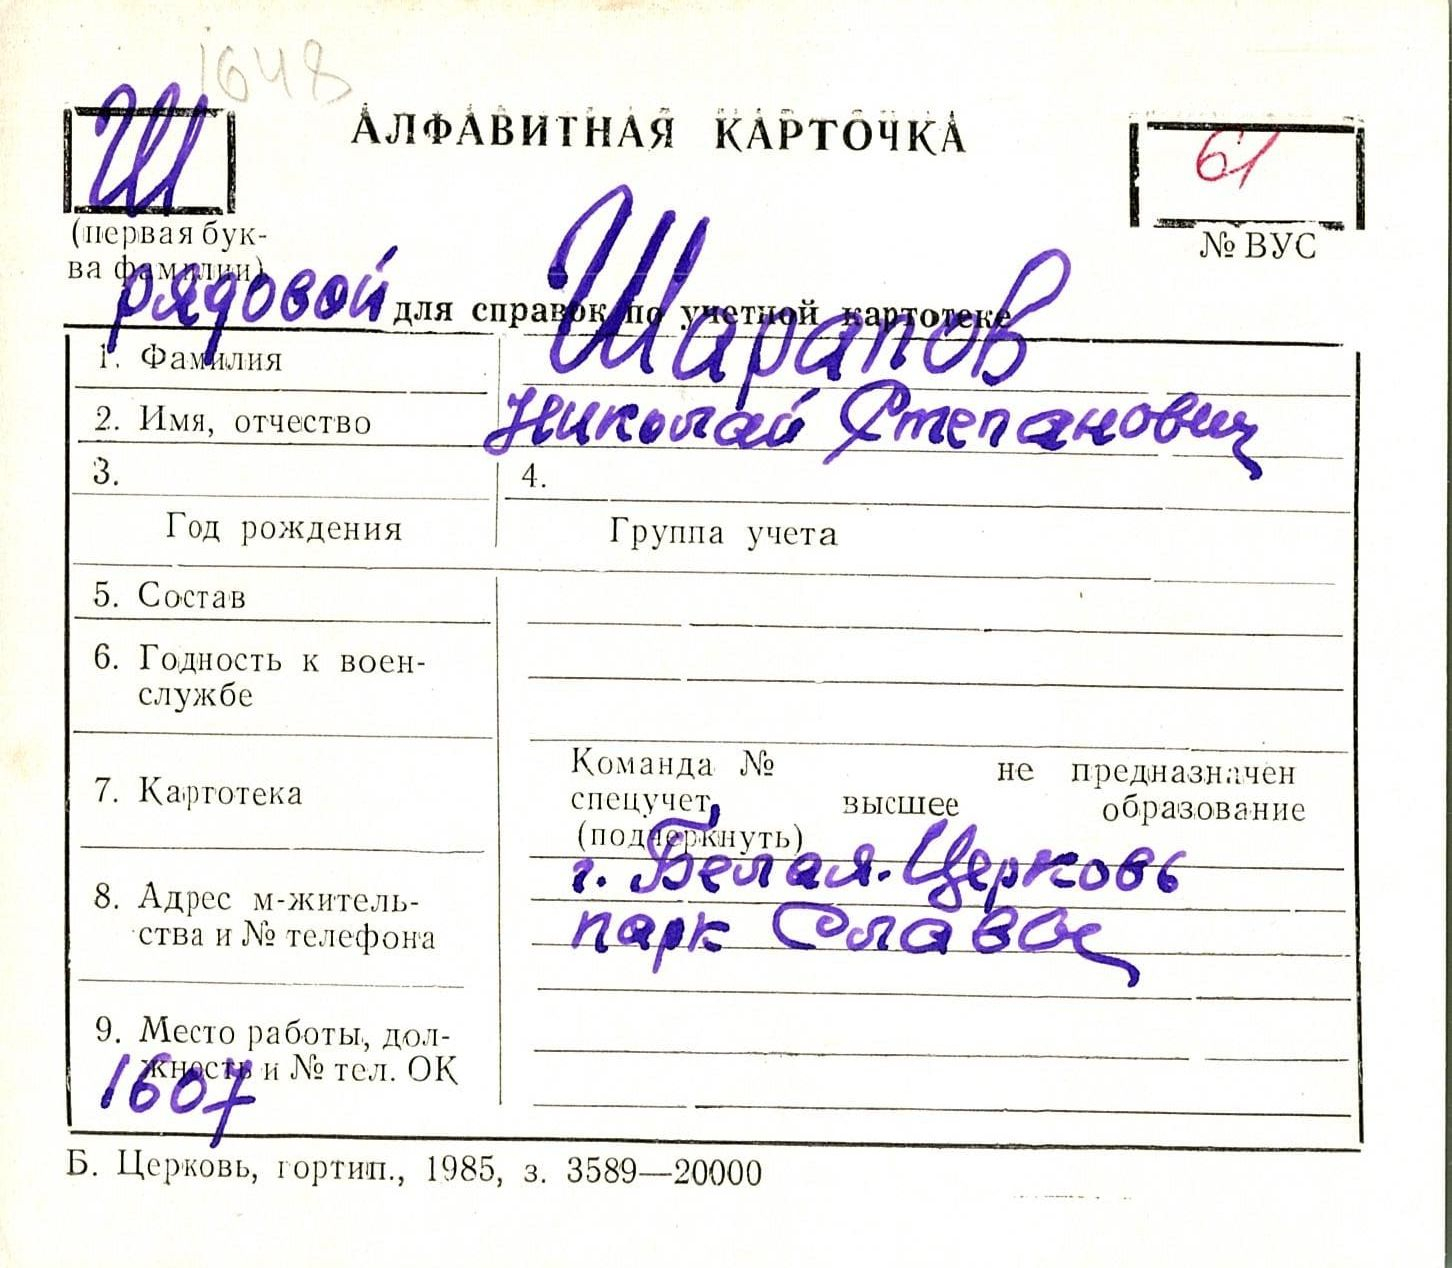 1648
Ш
АЛФАВИТНАЯ КАРТОЧКА
61
(первая бук-
ва фамилии)
№ ВУС
рядовой для справок по учетной картотеке
1. Фамилия Шарапов
2. Имя, отчество Николай Степанович
3. 4.
Год рождения Группа учета
5. Состав
6. Годность к воен-
службе
7. Картотека
Команда № не предназначен
спецучет, высшее образование
(подчеркнуть)
8. Адрес м-житель-
ства и № телефона
г. Белая-Церковь
парк Славы
9. Место работы, дол-
жность и № тел. ОК
1607
Б. Церковь, гортип., 1985, з. 3589—20000